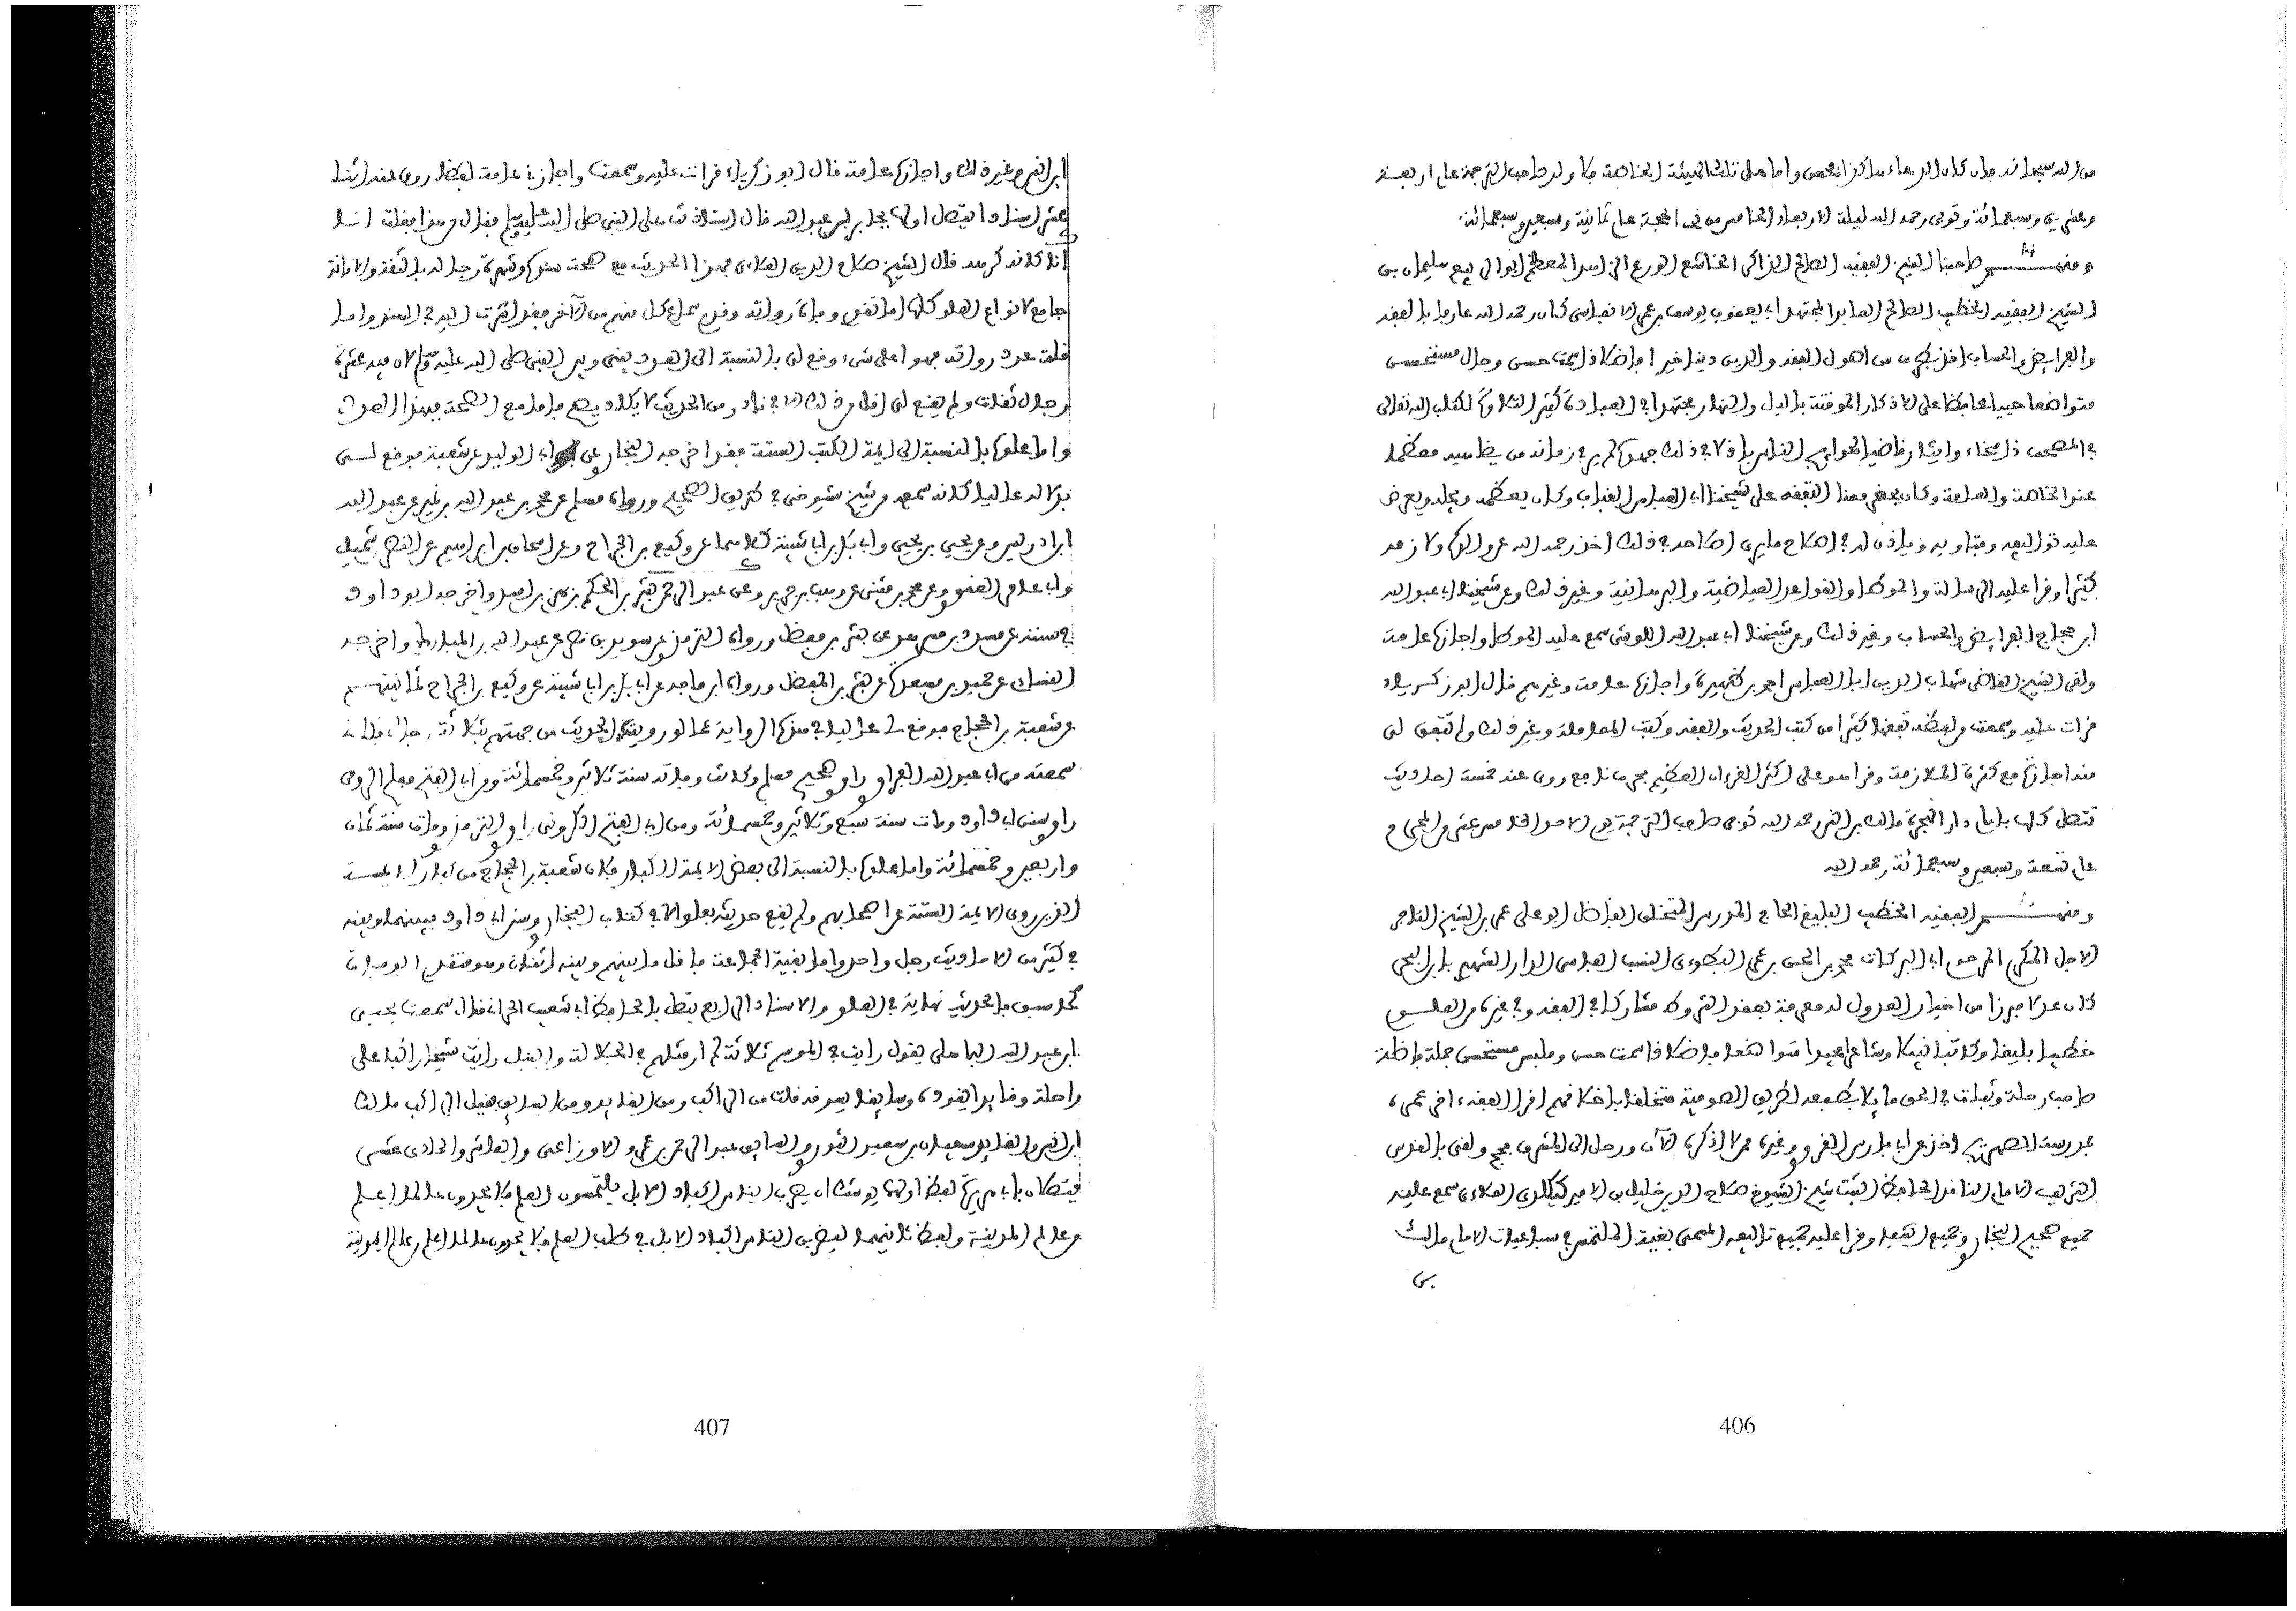 من الله سبحانه فإن كان الدعاء هاكذا محض واما على تلك الهيئة الخاصة فلا ولد صاحب الترجمة عام اربعة
وعشرين وسبعمائة وتوفى رحمه الله ليلة الاربعاء الخامس من ذى الحجة عام ثمانية وسبعين وسبعمائة
ومنهم صاحبنا الشيخ الفقيه الصالح الزاكى الخاشع الورع الزاهد المعظم ابو الربيع سليمان بن
الشيخ الفقيه الخطيب الصالح العابد المجتهد ابى يعقوب يوسف بن عمر الانفاسى كان رحمه الله عارفا بالفقه
والفرايض والحساب اخذ بطرف من اصول الفقه والدين دينا خيرا فاضلا ذا سمت حسن وحال مستحسن
متواضعا حييا محافظا على الاذكار الموقتة بالليل والنهار مجتهدا فى العبادة كثير التلاوة لكتاب الله تعالى
فى المصحف ذا سخاء وايثار قاضيا لحوايج الناس باذلا فى ذلك جهده لم ير فى زمانه من يضاهيه معظما
عند الخاصة والعامة وكان يحضر معنا التفقه على شيخنا ابى العباس القباب وكان يعظمه ويجله ويعرض
عليه تواليفه وفتاويه وياذن له فى اصلاح ما يرى اصلاحه فى ذلك اخذ رحمه الله عن والده ولازمه
كثيرا وقرا عليه الرسالة والموطا والقواعد العياضية والبرهانية وغير ذلك وعن شيخنا ابى عبد الله
ابن حجاج الفرايض والحساب وغير ذلك وعن شيخنا ابى عبد الله اللوشى سمع عليه الموطا واجازه عامة
ولقى الشيخ القاضى شهاب الدين ابا العباس احمد بن ظهيرة واجازه عامة وغيرهم قال ابو زكرياء
قرات عليه وسمعت ولفظه تفقها كثيرا من كتب الحديث والفقه وكتب المعاملة وغير ذلك ولم تتفق لى
منه اجازة مع كثرة الملازمة وقرا هو على اكثر القرءان العظيم بحرف نافع روى عنه خمسة احاديث
تتصل كلها بإمام دار الهجرة مالك بن انس رحمه الله توفى صاحب الترجمة يوم الاحد الخامس عشر من المحرم
عام تسعة وسبعين وسبعمائة رحمه الله
ومنهم الفقيه الخطيب البليغ الحاج المدرس المتخلق الفاضل ابو على عمر بن الشيخ التاجر
الاجل المكرم المرحوم ابى البركات محمد بن الحسن بن عمر البطوءى النسب الفاسى الدار الشهير بابن البحر
كان عدلا مبرزا من اخيار العدول له معرفة بعقد الشروط مشاركا فى الفقه وفى غيره من العلوم
خطيبا بليغا وكاتبا نبيلا وشاعرا مجيدا متواضعا فاضلا ذا سمت حسن وملبس مستحسن جملة فاضلة
صاحب رحلة وثبات فى الحق مايلا بطبعه لطريق الصوفية متخلقا باخلاقهم اقرا الفقه اخر عمره
بمدرسة الصهريج اخذ عن ابى فارس القروى وغيره ممن لا اذكره الآن ورحل الى المشرق فحج ولقى بالقدس
الشريف الامام الناقد الحافظ الثبت شيخ الشيوخ صلاح الدين خليل بن الامير كيكلدى العلاءى سمع عليه
جميع صحيح البخارى وجميع الشفا وقرا عليه جميع تاليفه المسمى بغية الملتمس فى سباعيات الامام مالك
بن
ابن انس وغير ذلك واجازه عامة قال ابو زكرياء قرات عليه وسمعت واجازنى عامة لفظا روى عنه اثنا
عشر اسنادا يتصل اولها بجابر بن عبد الله قال استاذنت على النبى صلى الله عليه وسلم فقال من هذا فقلت انا
انا كانه كرهه قال الشيخ صلاح الدين العلاءى فهذا الحديث مع صحة سنده وشهرة رجاله بالثقة والامانة
جامع لانواع العلو كلها اما تقدم وفاة رواته وقدم سماع كل منهم من الآخر فقد اشرت اليه فى السند واما
قلة عدد رواته فهو اعلى شىء وقع لى بالنسبة الى العدد بينى وبين النبى صلى الله عليه وسلم لان فيه عشرة
رجال ثقات ولم يقع لى اقل من ذلك الا فى نادر من الحديث لا يكاد يصح فاما مع الصحة فبهذا العدد
واما علوه بالنسبة الى ايمة الكتب الستة فقد اخرجه البخارى عن ابى الوليد عن شعبة فوقع لى
بدلا له عاليا كانه سمعه من شيخ شيوخى فى طريق الصحيح ورواه مسلم عن محمد بن عبد الله بن نمير عن عبد الله
ابن ادريس وعن يحيى بن يحيى وابى بكر بن ابى شيبة كلاهما عن وكيع بن الجراح وعن اسحاق بن ابراهيم عن النضر بن شميل
وابى عامر العقدى وعن محمد بن مثنى عن وهب بن جرير وعن عبد الرحمن بن بشر بن الحكم عن بهز بن اسد واخرجه ابو داود
فى سننه عن مسدد بن مسرهد عن بشر بن مفضل ورواه الترمذى عن سويد بن نصر عن عبد الله بن المبارك واخرجه
النساءى عن حميد بن مسعدة عن بشر بن المفضل ورواه ابن ماجه عن ابى بكر بن ابى شيبة عن وكيع بن الجراح ثمانيتهم
عن شعبة بن الحجاج فوقع لى عاليا فى هذه الرواية عما لو رويت الحديث من جهتهم بثلاثة رجال فكانى
سمعته من ابى عبد الله الفراوى راوى صحيح مسلم وكانت وفاته سنة ثلاثين وخمسمائة ومن ابى الفتح مفلح الرومى
راوى سنن ابى داود ومات سنة سبع وثلاثين وخمسمائة ومن ابى الفتح الكروخى راوى الترمذى ومات سنة ثمان
واربعين وخمسمائة واما علوه بالنسبة الى بعض الايمة الكبار فكان شعبة بن الحجاج من كبار الايمة
الذين روى الايمة الستة عن اصحابهم ولم يقع حديثه بعلو الا فى كتاب البخارى وسنن ابى داود فبينهما وبينه
فى كثير من الاحاديث رجل واحد واما بقية الجماعة فاقل ما بينهم وبينه اثنان وهو متقدم الوفاة
كما سبق فالحديث نهاية فى العلو والاسناد الرابع يتصل بالحافظ ابى شعيب الحرانى قال سمعت يحيى
ابن عبد الله البابلتى يقول رايت فى الموسم ثلاثة لم ار مثلهم فى الجلالة والنبل رايت شيخا راكبا على
راحلة وقايد يقوده وسايقا يسوقه قلت من الراكب ومن القايد ومن السايق فقيل الراكب مالك
ابن انس والقايد سفيان بن سعيد الثورى والسايق عبد الرحمن بن عمرو الاوزاعى والعاشر والحادى عشر
يتصلان بابى هريرة لفظ اولهما يوشك ان يضرب الناس اكباد الابل يلتمسون العلم فلا يجدون عالما اعلم
من عالم المدينة ولفظ ثانيهما ليضربن الناس اكباد الابل فى طلب العلم فلا يجدون عالما اعلم من عالم المدينة
407
406